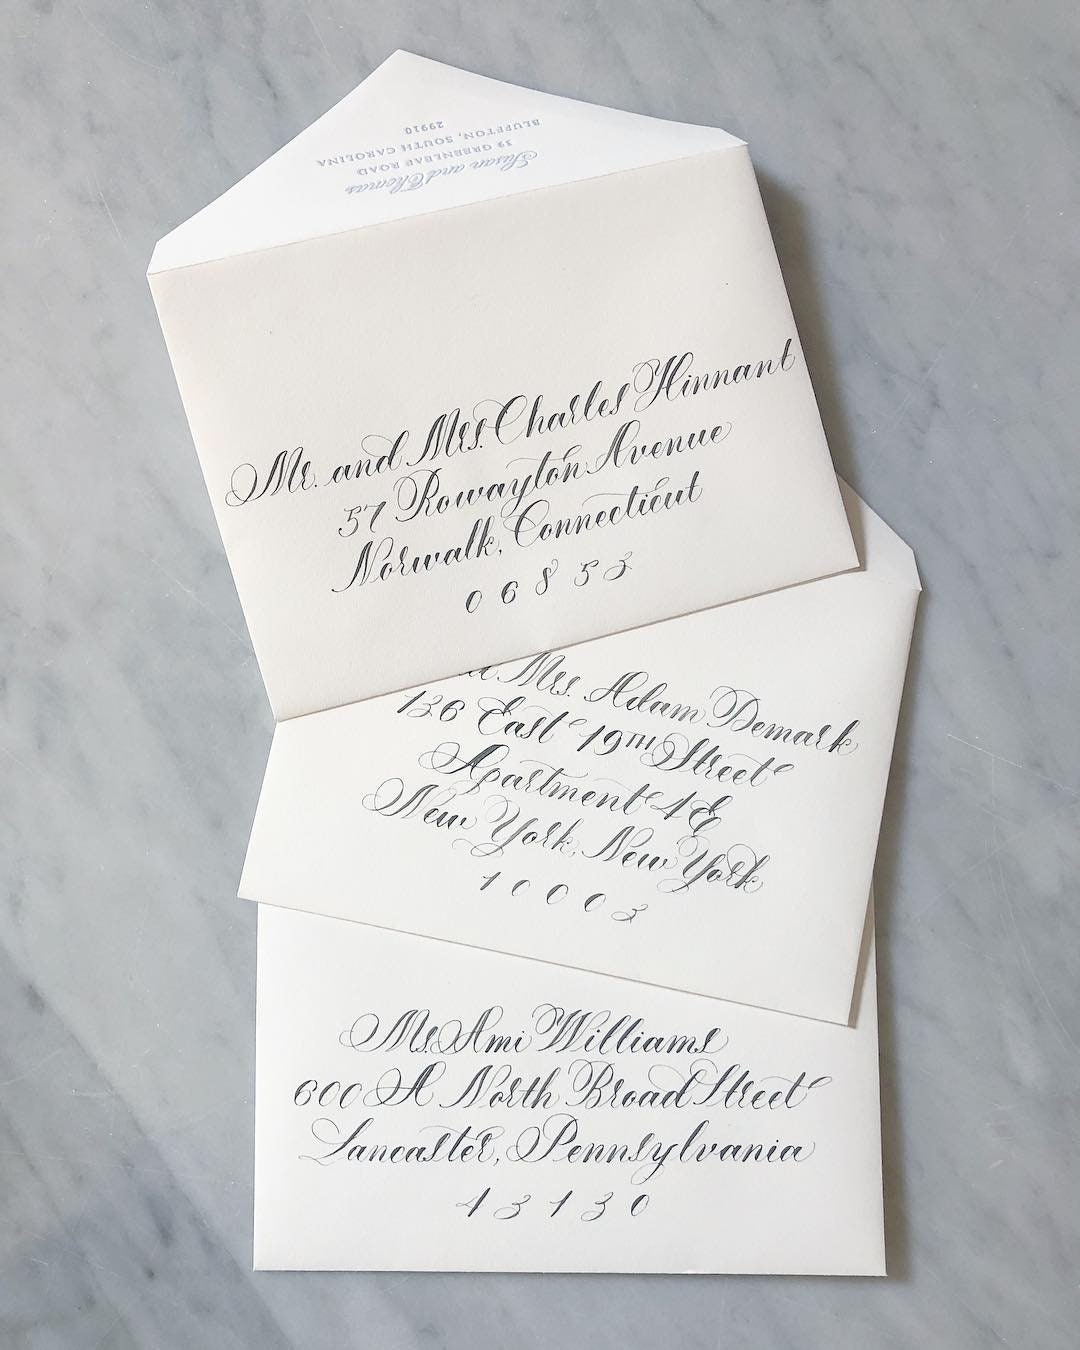 Susan and Thomas
19 GREENLEAF ROAD
BLUFFTON, SOUTH CAROLINA
29910
Mr. and Mrs. Charles Hinnant
57 Rowayton Avenue
Norwalk, Connecticut
06853
Mrs. Adam Demark
136 East 19TH Street
Apartment 4E
New York, New York
10003
Ms. Ami Williams
600 A North Broad Street
Lancaster, Pennsylvania
43130